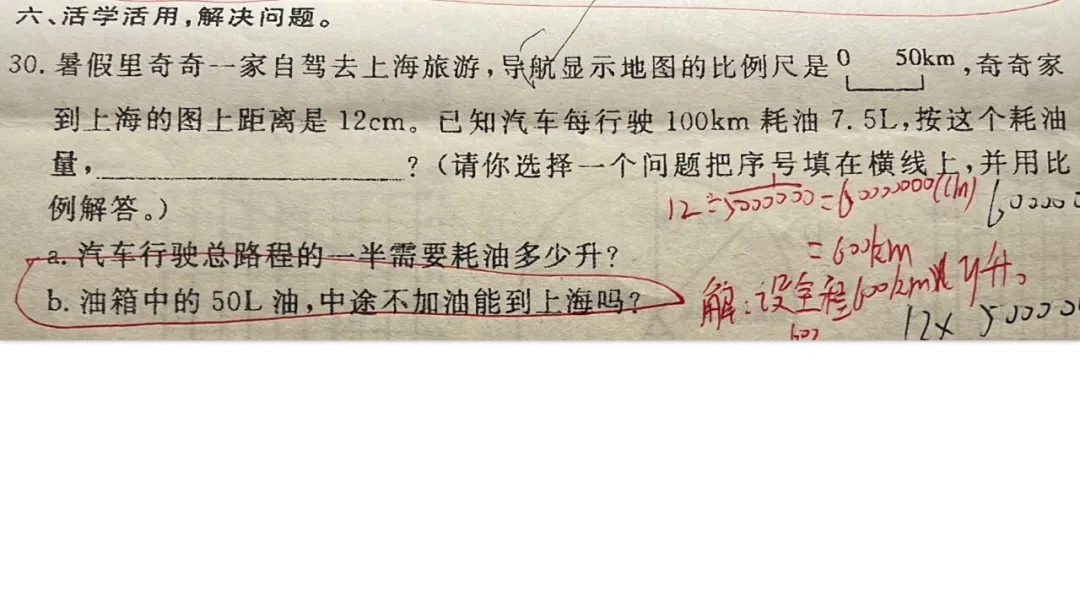 六、活学活用,解决问题。
30. 暑假里奇奇一家自驾去上海旅游,导航显示地图的比例尺是 0 50km ,奇奇家
到上海的图上距离是 12cm。已知汽车每行驶 100km 耗油 7.5L,按这个耗油
量,____________________?(请你选择一个问题把序号填在横线上,并用比
例解答。)
12÷1/5000000=60000000(cm)
=600km
a. 汽车行驶总路程的一半需要耗油多少升?
b. 油箱中的 50L 油,中途不加油能到上海吗?
解:设全程600km y升。
12× 500000